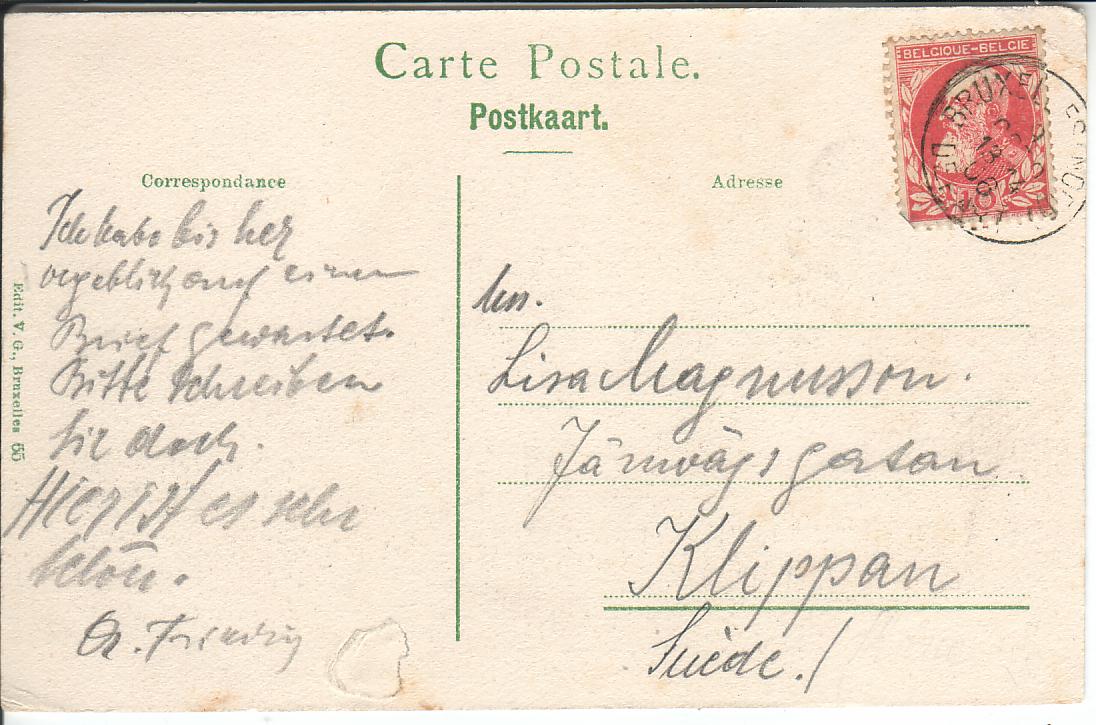 Carte Postale.
Postkaart.
BELGIQUE-BELGIE
10
BRUXEL
Correspondance
Ich habe bis her
vergeblich auf einen
Brief gewartet.
Bitte schreiben
Sie doch.
Hier ist es sehr
schön.
Edit. V. G., Bruxelles 65
Adresse
Lisa Magnusson.
Järnvägsgatan
Klippan
Suède./